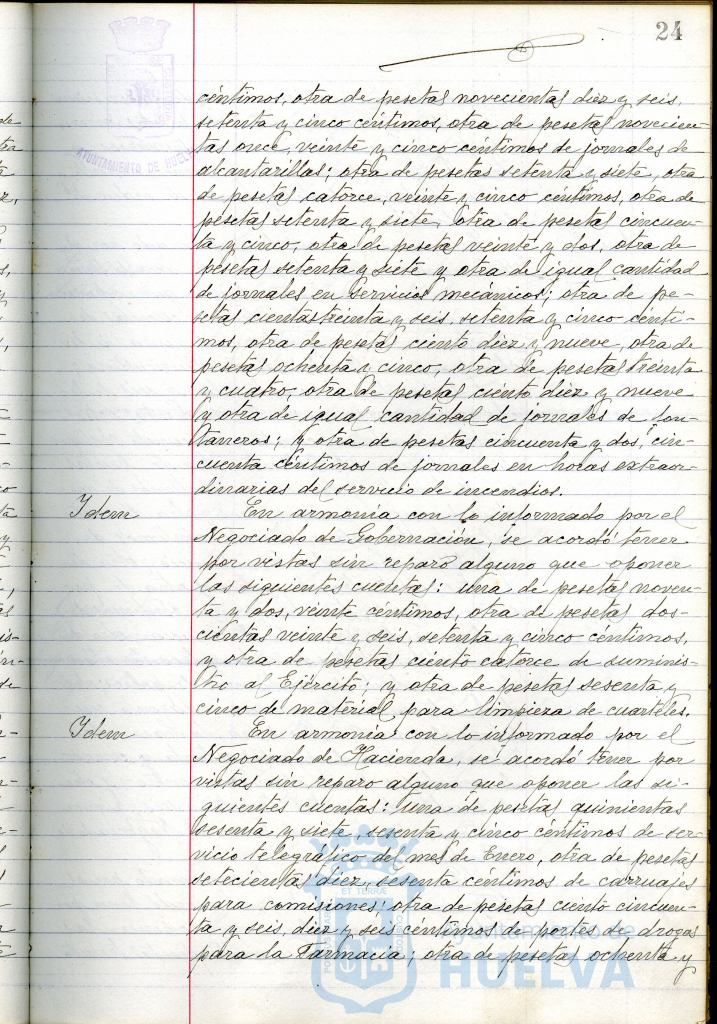 24
AYUNTAMIENTO DE HUELVA
céntimos, otra de pesetas novecientas diez y seis,
setenta y cinco céntimos, otra de pesetas novecien-
tas once, veinte y cinco céntimos de jornales de
alcantarillas; otra de pesetas setenta y siete, otra
de pesetas catorce, veinte y cinco céntimos, otra de
pesetas setenta y siete, otra de pesetas cincuen-
ta y cinco, otra de pesetas veinte y dos, otra de
pesetas setenta y siete y otra de igual cantidad
de jornales en servicios mecánicos; otra de pe-
setas ciento treinta y seis, setenta y cinco cénti-
mos, otra de pesetas ciento diez y nueve, otra de
pesetas ochenta y cinco, otra de pesetas treinta
y cuatro, otra de pesetas ciento diez y nueve
y otra de igual cantidad de jornales de fon-
taneros; y otra de pesetas cincuenta y dos, cin-
cuenta céntimos de jornales en horas extraor-
dinarias del servicio de incendios.
Idem
En armonía con lo informado por el
Negociado de Gobernación, se acordó tener
por vistas sin reparo alguno que oponer
las siguientes cuentas: una de pesetas noven-
ta y dos, veinte céntimos, otra de pesetas dos-
cientas veinte y seis, setenta y cinco céntimos,
y otra de pesetas ciento catorce de suminis-
tro al Ejército; y otra de pesetas sesenta y
cinco de material para limpieza de cuarteles.
Idem
En armonía con lo informado por el
Negociado de Hacienda, se acordó tener por
vistas sin reparo alguno que oponer las si-
guientes cuentas: una de pesetas quinientas
sesenta y siete, sesenta y cinco céntimos de ser-
vicio telegráfico del mes de Enero, otra de pesetas
setecientas diez, sesenta céntimos de carruajes
para comisiones; otra de pesetas ciento cincuen-
ta y seis, diez y seis céntimos de portes de drogas
para la Farmacia; otra de pesetas ochenta y
Ayuntamiento de
HUELVA